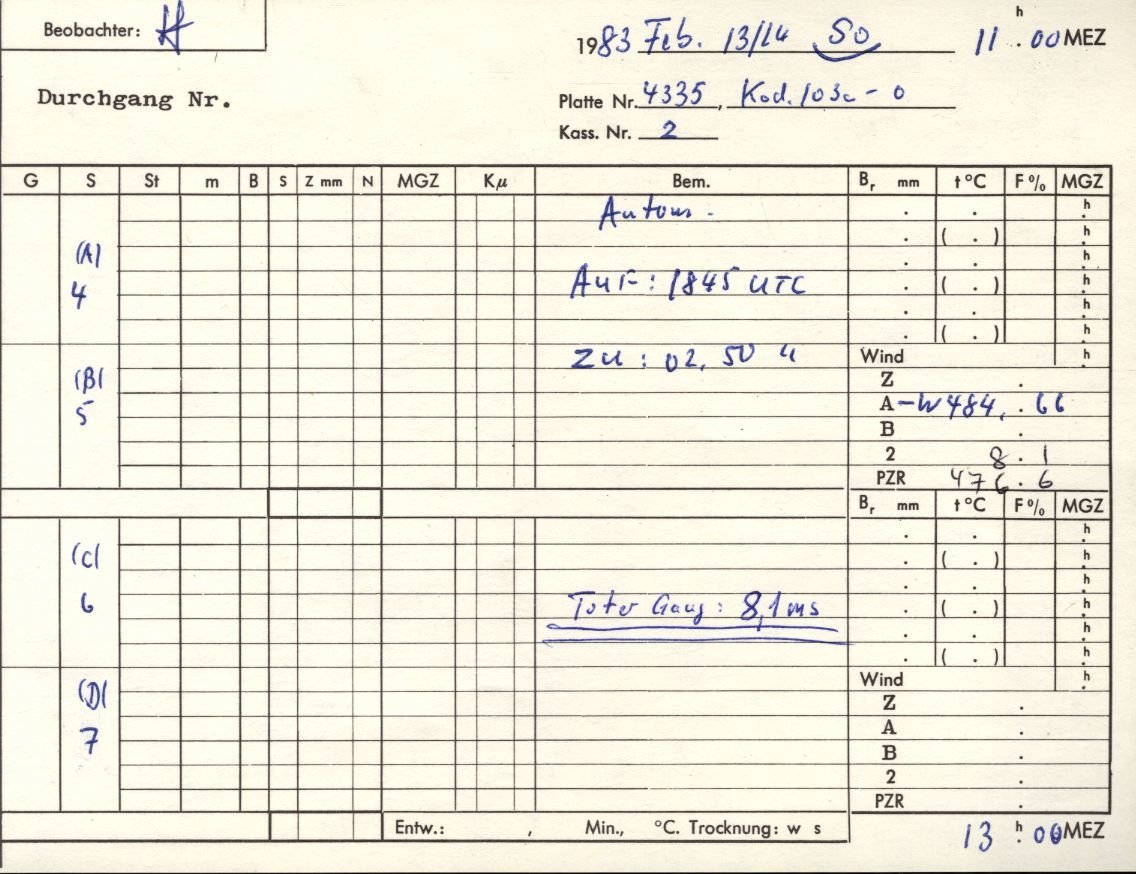 Beobachter: H
1983 Feb. 13/14 So 11 h . 00 MEZ
Durchgang Nr.
Platte Nr. 4335, Kod. 103a - 0
Kass. Nr. 2
G S St m B S Z mm N MGZ Kμ Bem. Br mm t°C F% MGZ
. . h
Autom.
. ( . ) h
(A)
. h
4
Auf: 1845 UTC
. ( . ) h
. h
. ( . ) h
Zu : 02. 50 "
Wind h
(B)
Z .
5
A -W 484, . 66
B .
2 8 . 1
PZR 476 . 6
Br mm t°C F% MGZ
. . h
(C)
. ( . ) h
. . h
6
Toter Gang: 8,1 ms
. ( . ) h
. . h
. ( . ) h
Wind h
(D)
Z .
A .
7
B .
2 .
PZR .
Entw.: , Min., °C. Trocknung: w s
13 h . 00 MEZ